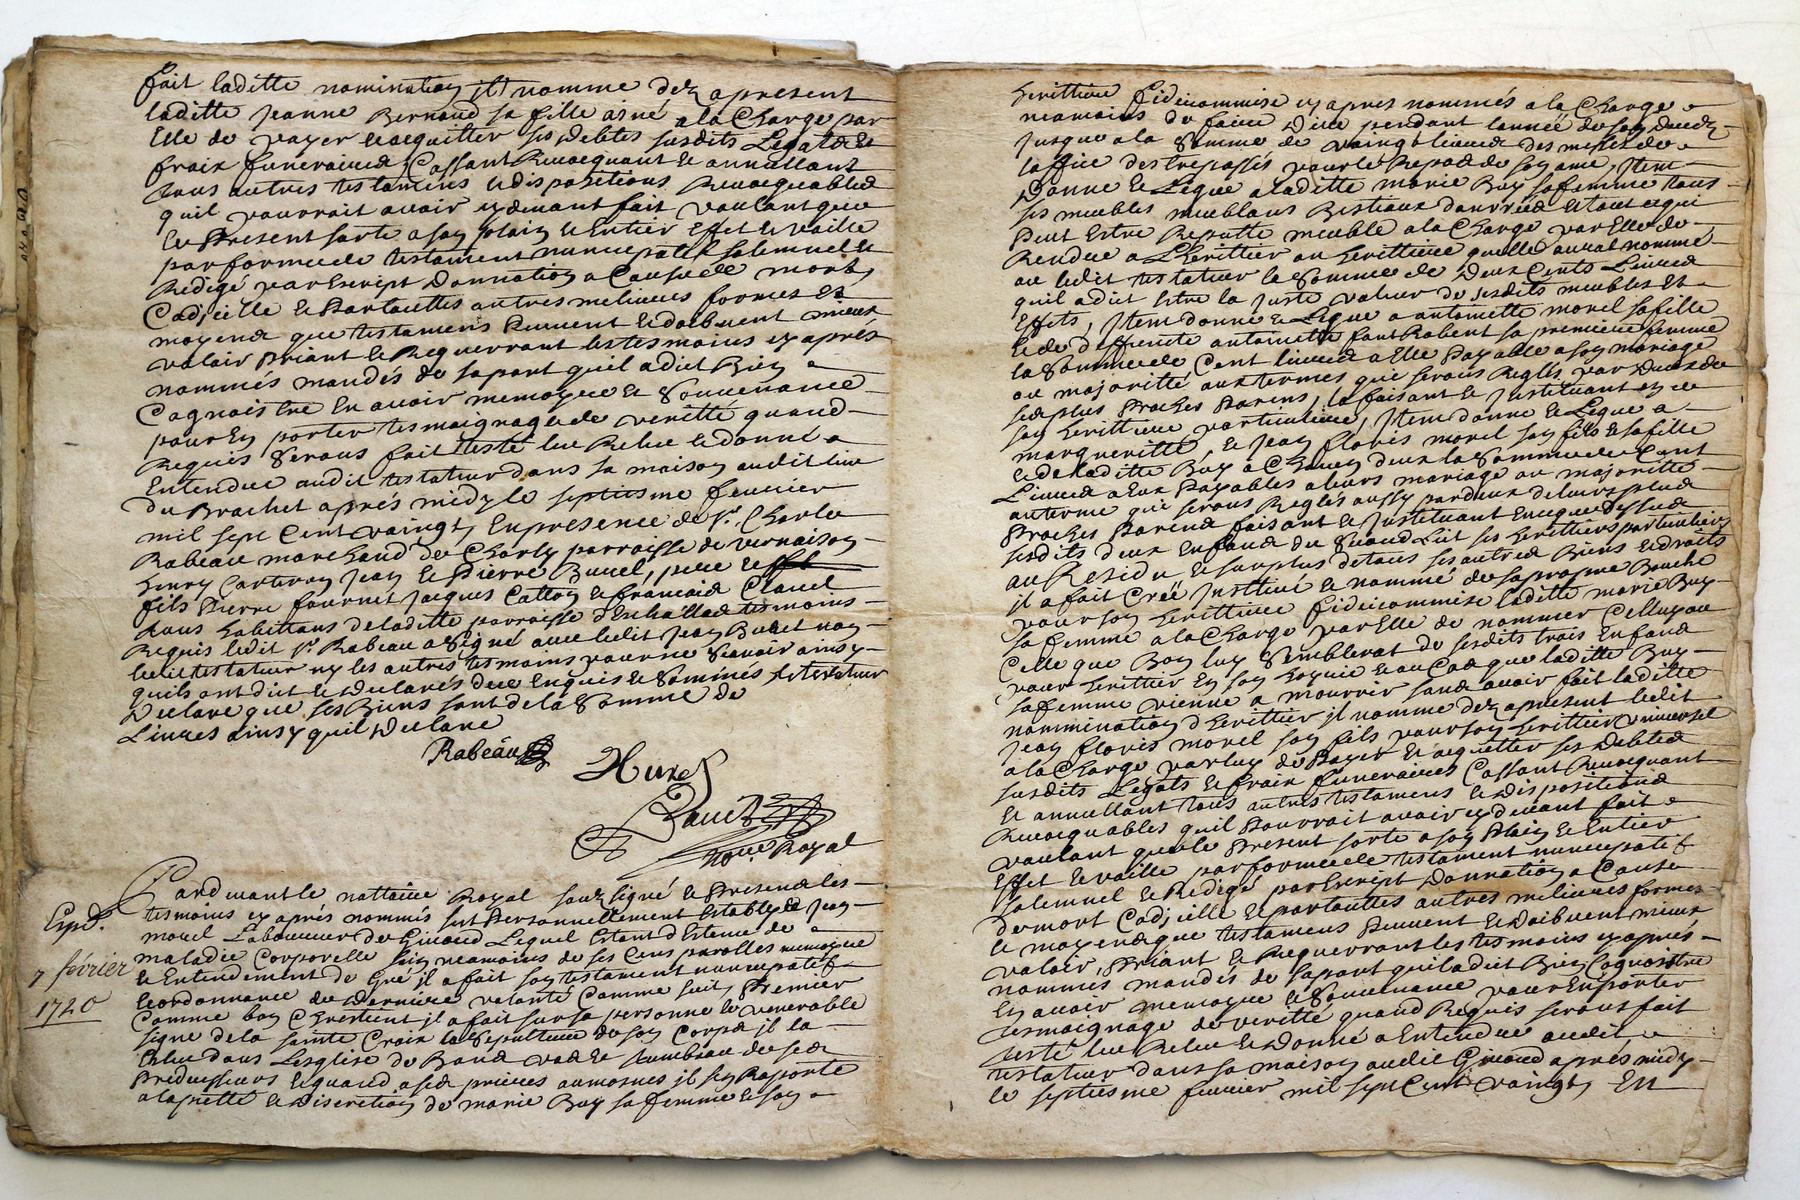 fait laditte nomination il nomme dez apresent
laditte Jeanne Bernaud sa fille aisné ala Charge par
Elle de payer et acquitter ses debtes susdits Legats et
fraix funeraires Cassant Revocquant et annullant
tous autres testamens et dispositions Revocquables
quil pourrait avoir cy devant fait voulant que
le present sorte a son plain et Entier Effet et vaille
par forme de testament nuncupatif solemnel et
Redigé par Escript Donnation a Cause de mort
Codicille et partouttes autres melieures formes et
moyens que testamens peuvent et doibvent mieux
valoir priant et Requerrant les tesmoins cy après
nommés mandés de sa part quil a dict Bien
Cognoistre En avoir memoyre et Souvenance
pour En porter tesmoignage de veritté quand
Requis Serons fait testé lue Relue et donné a
Entendre audit testateur dans sa maison audit lieu
Du Brachet après midy le septiesme feuvrier
mil sept Cent vaingt, En presence de Sr. Charle
Rabeau marchand de Charly parroisse de vernaison
henry Jean et Pierre Buuel, pere et
fils Pierre fournet Jacques Catton et francois Claud
tous habittans de laditte parroisse tesmoins
Requis ledit Sr Rabeau a Signé avec ledit Jean non
ledit testateur ny les autres tesmoins pour ne Scavoir ainsy
quils ont dict et declarés de ce Enquis et Sommés le testateur
Declare que ses Biens sont de la Somme de
Livres ainsy quil declare
Rabeau

nore Royal
Pardevant le nottaire Royal souzsigné et Presens les
Expd.
tesmoins cy aprés nommés fut Personnellement Estably Jean
morel Laboureur de Givaud Lequel Estant detenu de
maladie Corporelle sein neamoins de ses Cens parolles memoyre
7 février
et Entendement de Gré il a fait son testament nuncupatif
1720
et ordonnance de derniere volonté Comme suit, Premier
Comme bon Chrestient il a fait sur sa personne le venerable
signe de la sainte Croix la sepulture de son Corps il la
Eslu dans Lesglise de au tumbeau de ses
Predecesseurs et quand a ses prieres aumosnes il sen Raporte
a la pietté et discretion de marie Buy sa femme et son
herittiere fideicommise cy apres nommés a la Charge
neamoins de faire Dire pendant lannée de son deceds
jusque a la Somme de vaingt livres des messes de
loffice des trespassés pour le Repos de son ame, Item
Donne et Legue a laditte marie Buy sa femme tous
ses meubles meublans Bestiaux danrées et tout ce qui
peut Estre Reputte meuble a la Charge par Elle de
Rendre a Lherittier ou herittiere quelle aurat nommé
au ledit testateur la Somme de Deux Cents Livres
quil a dit Estre la juste valeur de sesdits meubles et
Effets, Item donne et Legue a antoinette morel sa fille
et de deffuncte antoinette sa premiere femme
la Somme de Cent livres a Elle Payable a son mariage
ou majoritté aux termes que serons Reglés par deux de
ses plus Proches Parens, la faisant et Instituant en ce
son herittiere particuliere, Item donne et Legue a
margueritte, et Jean floris morel son fils et sa fille
et de laditte Buy a Chacun deux la Somme de Cent
Livres a Eux Payables a leurs mariage ou majoritté
au terme que serons Reglés aussy par deux de leurs plus
Proches Parens faisant et Instituant En ce que dessus
sesdits deux Enfans du Second Lit ses herittiers particuliers
au Residu et surplus de tous ses autres Biens et droits
il a fait Creë Institué et nommé de sa propre Bouche
pour son herittiere fideicommise laditte marie Buy
sa femme a la Charge par Elle de nommer Celluy ou
Celle que Bon luy Semblerat de sesdits trois Enfans
pour herittier En son hoyrie et au Cas que laditte Buy
sa femme vienne a mourrir sans avoir fait laditte
nommination dherittier il nomme dez apresent ledit
Jean floris morel son fils pour son herittier universel
a la Charge par luy de Payer et acquitter ses debtes
susdits Legats et fraix funeraires Cassant Revocquant
Et annullant tous autres testamens et dispositions
Revocquables quil Pourroit avoir cy devant fait
voulant que le Present sorte a son Plain et Entier
Effet et vaille par forme de testament nuncupatif
Solemnel et Redigé par Escript Donnation a Cause
de mort Codicille et partouttes autres melieures formes
et moyens que testamens Peuvent et doibvent mieux
valoir, Priant et Requerrant les tesmoins cy apres
nommés mandés de sa part quil a dict Bien Cognoistre
En avoir memoyre et Souvenance pour En porter
tesmoignage de veritté quand Requis serons fait
testé lue Relue et Donné a Entendre audit
testateur dans sa maison audit Givaud aprés midy
le septiesme feuvrier mil sept Cent vaingt, En